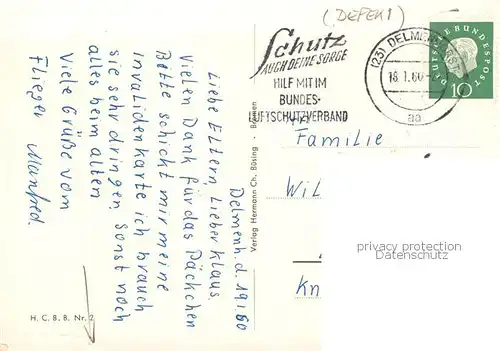 (DEFEKT)
Schutz
AUCH DEINE SORGE
HILF MIT IM
BUNDES-
LUFTSCHUTZVERBAND
(23) DELMENHORST
18.1.60
aa
DEUTSCHE BUNDESPOST
10
Delmenh. d. 19.1.60
Liebe Eltern, Lieber Klaus.
Vielen Dank für das Päckchen
Bitte schickt mir meine
Invalidenkarte ich brauch
sie sehr dringen. Sonst noch
alles beim alten
Viele Grüße vom
Flieger Manfred.
Verlag Hermann Ch. Büsing · Bremen
H. C. B. B. Nr. 2
Familie
Wil
Kn
privacy protection
Datenschutz